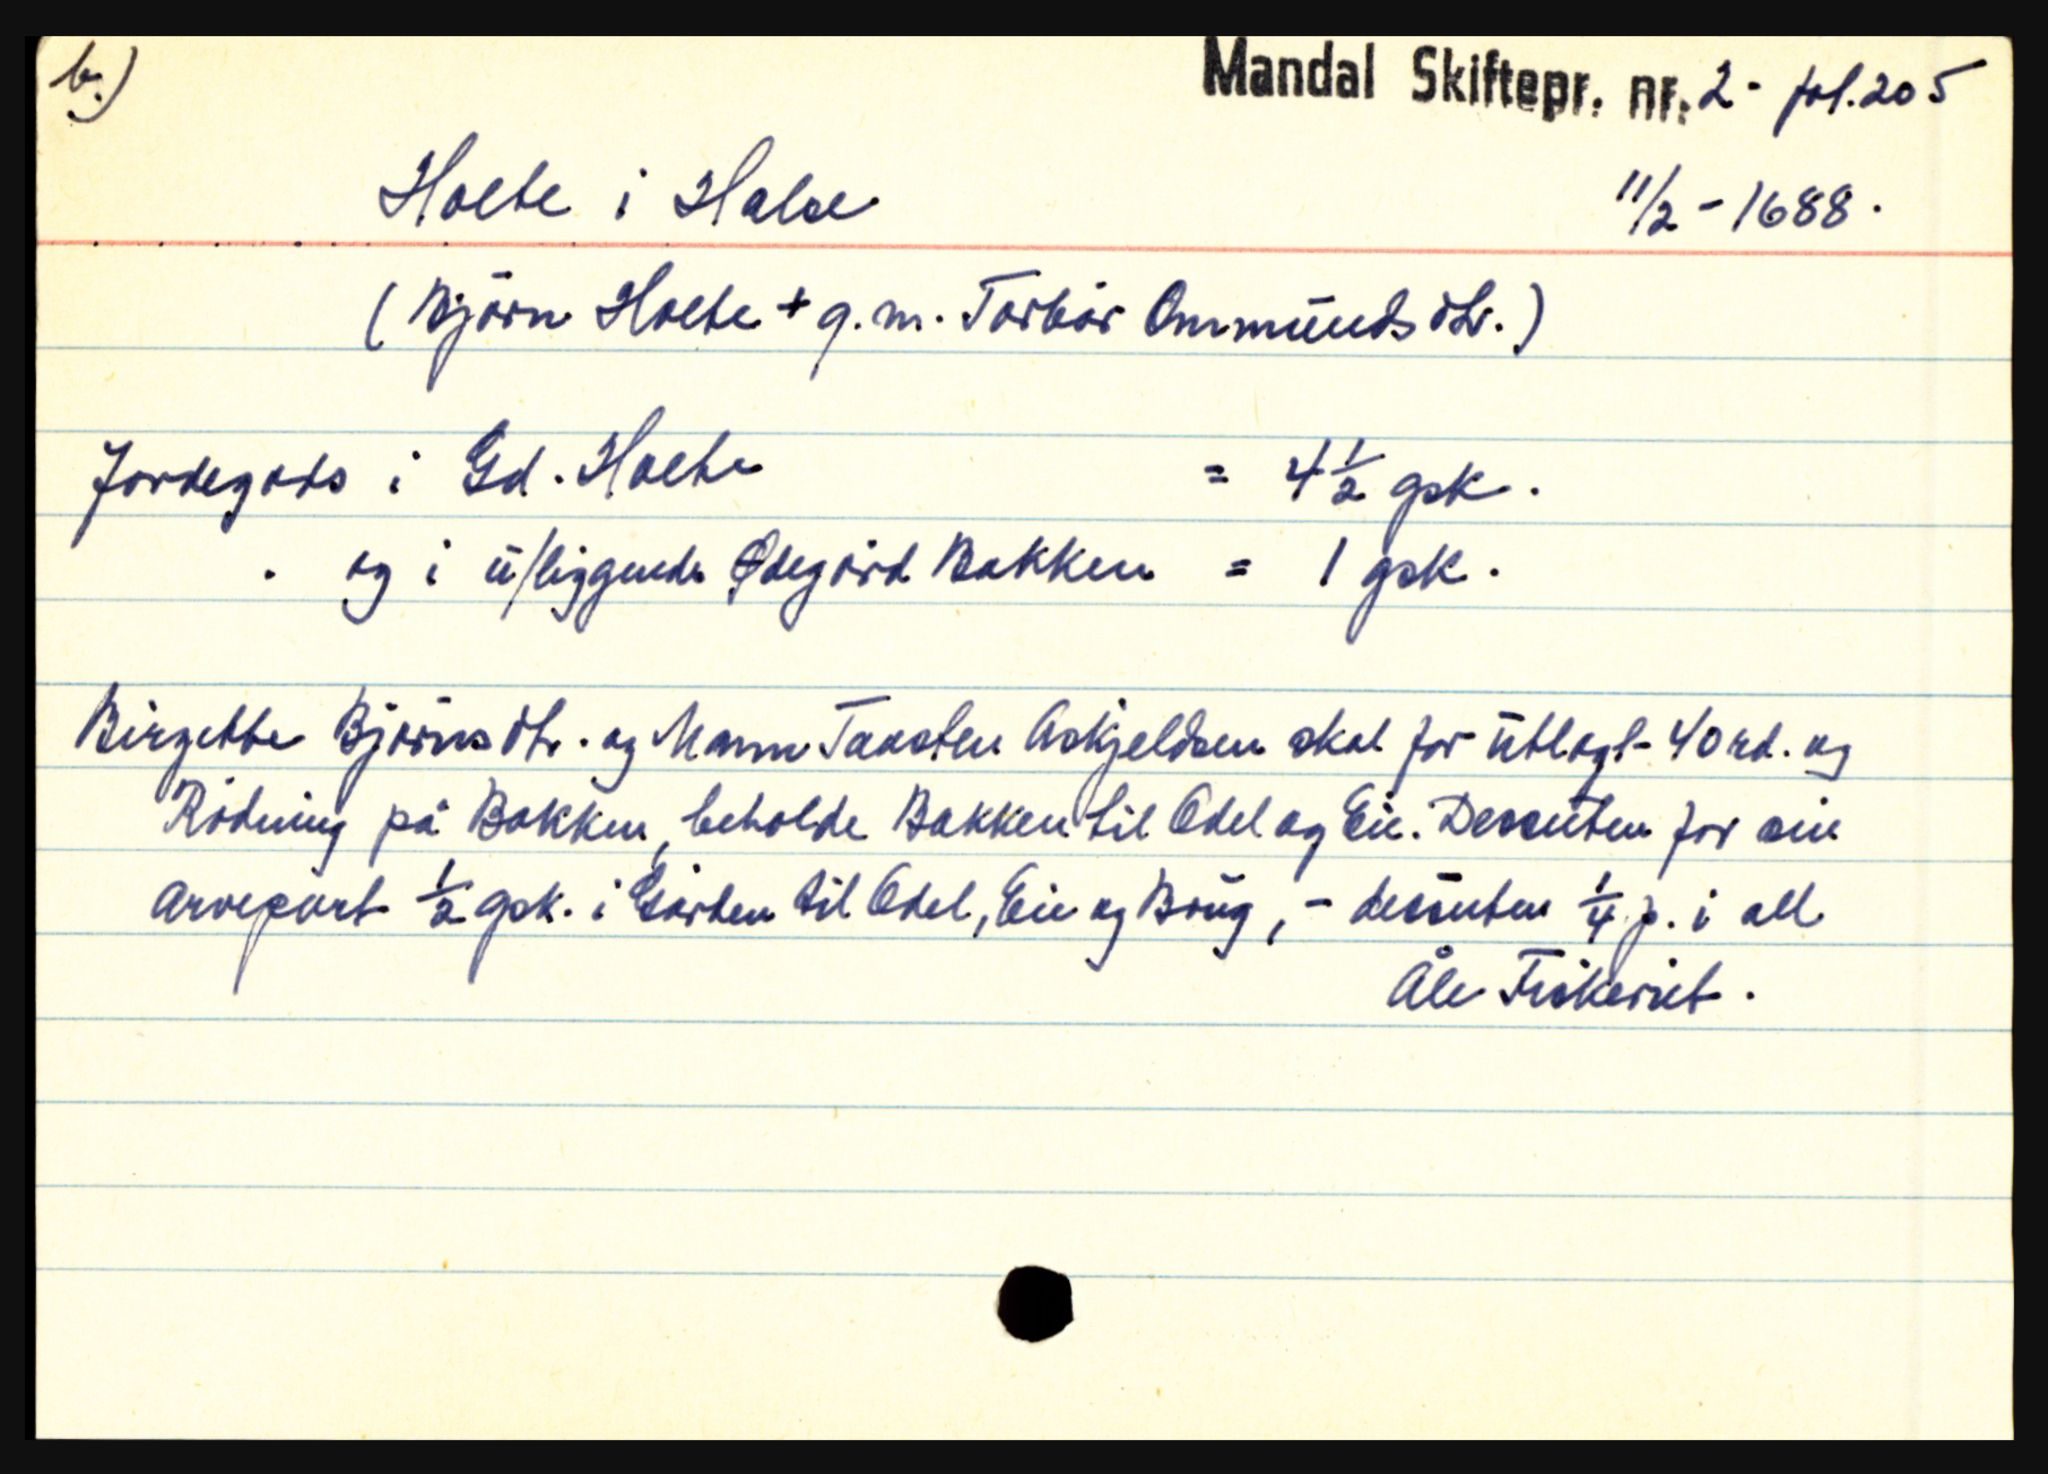 b.)
Mandal Skiftepr. nr. 2 - fol. 205
Holte i Halse
11/2 - 1688.
( Björn Holte + g. m. Torbör Ommundsdtr. )
Jordegods i Gd. Holte = 4 1/2 gsk.
" og i u/liggende Ødegård Bakken = 1 gsk.
Birgette Björnsdtr. og Mann Taasten Askjeldsen skal for utlagt 40 rd. og
Rödning på Bakken, beholde Bakken til Odel og Eie. Desuten for sin
arvepart 1/2 gsk. i Gården til Odel, Eie og Brug, - desuten 1/4 p. i all
Åle Fiskeriet.